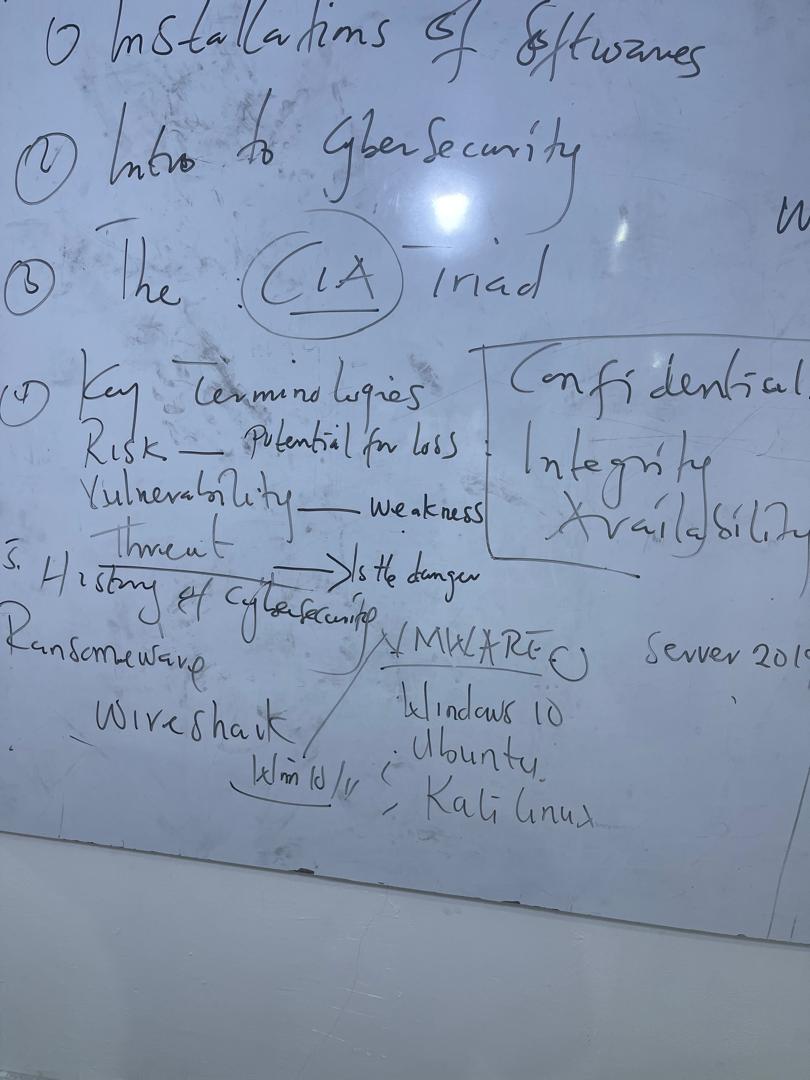 ① Installations of Softwares
② Intro to CyberSecurity
③ The CIA Triad
④ Key Terminologies
Risk — Potential for loss
Vulnerability — weakness
Threat → Is the danger
Confidential
Integrity
Availability
5. History of Cybersecurity
Ransomeware
Wireshark
Win 10/11
VMWARE
Windows 10
Ubuntu
Kali linux
Server 2019